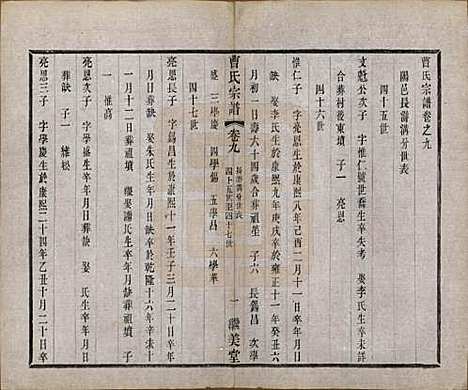 曹氏宗譜卷之九
陽邑長溝溝分世表
四十五世
支魁公次子 字惟仁號世喬生卒失考 娶李氏生卒未詳
合葬村後東墳 子一 亮恩
四十六世
惟仁子 亮恩生於康熙八年己酉二月十一日卒於
月初一日壽六十四歲合葬祖塋 子六 長錫昌 次學
娶李氏生於康熙九年庚戌卒於雍正十一年癸丑六
曹氏宗譜 卷九
四十五世至四十七世
一 讓美堂
盛 三學慶 四學錫 五學昌 六學華
四十七世
亮恩長子 字錫昌生於康熙十一年壬子三月二十日卒年
月日葬缺 娶朱氏生年月日缺卒於乾隆十六年辛未十
一月十二日葬祖墳 廢娶潘氏生卒年月日缺葬祖墳 子
一 惟高
亮恩次子 字學盛生卒年月日葬缺 娶 氏生卒年月日
葬缺 子一 維松
亮恩三子 字學慶生於康熙二十四年乙丑十月二十日卒